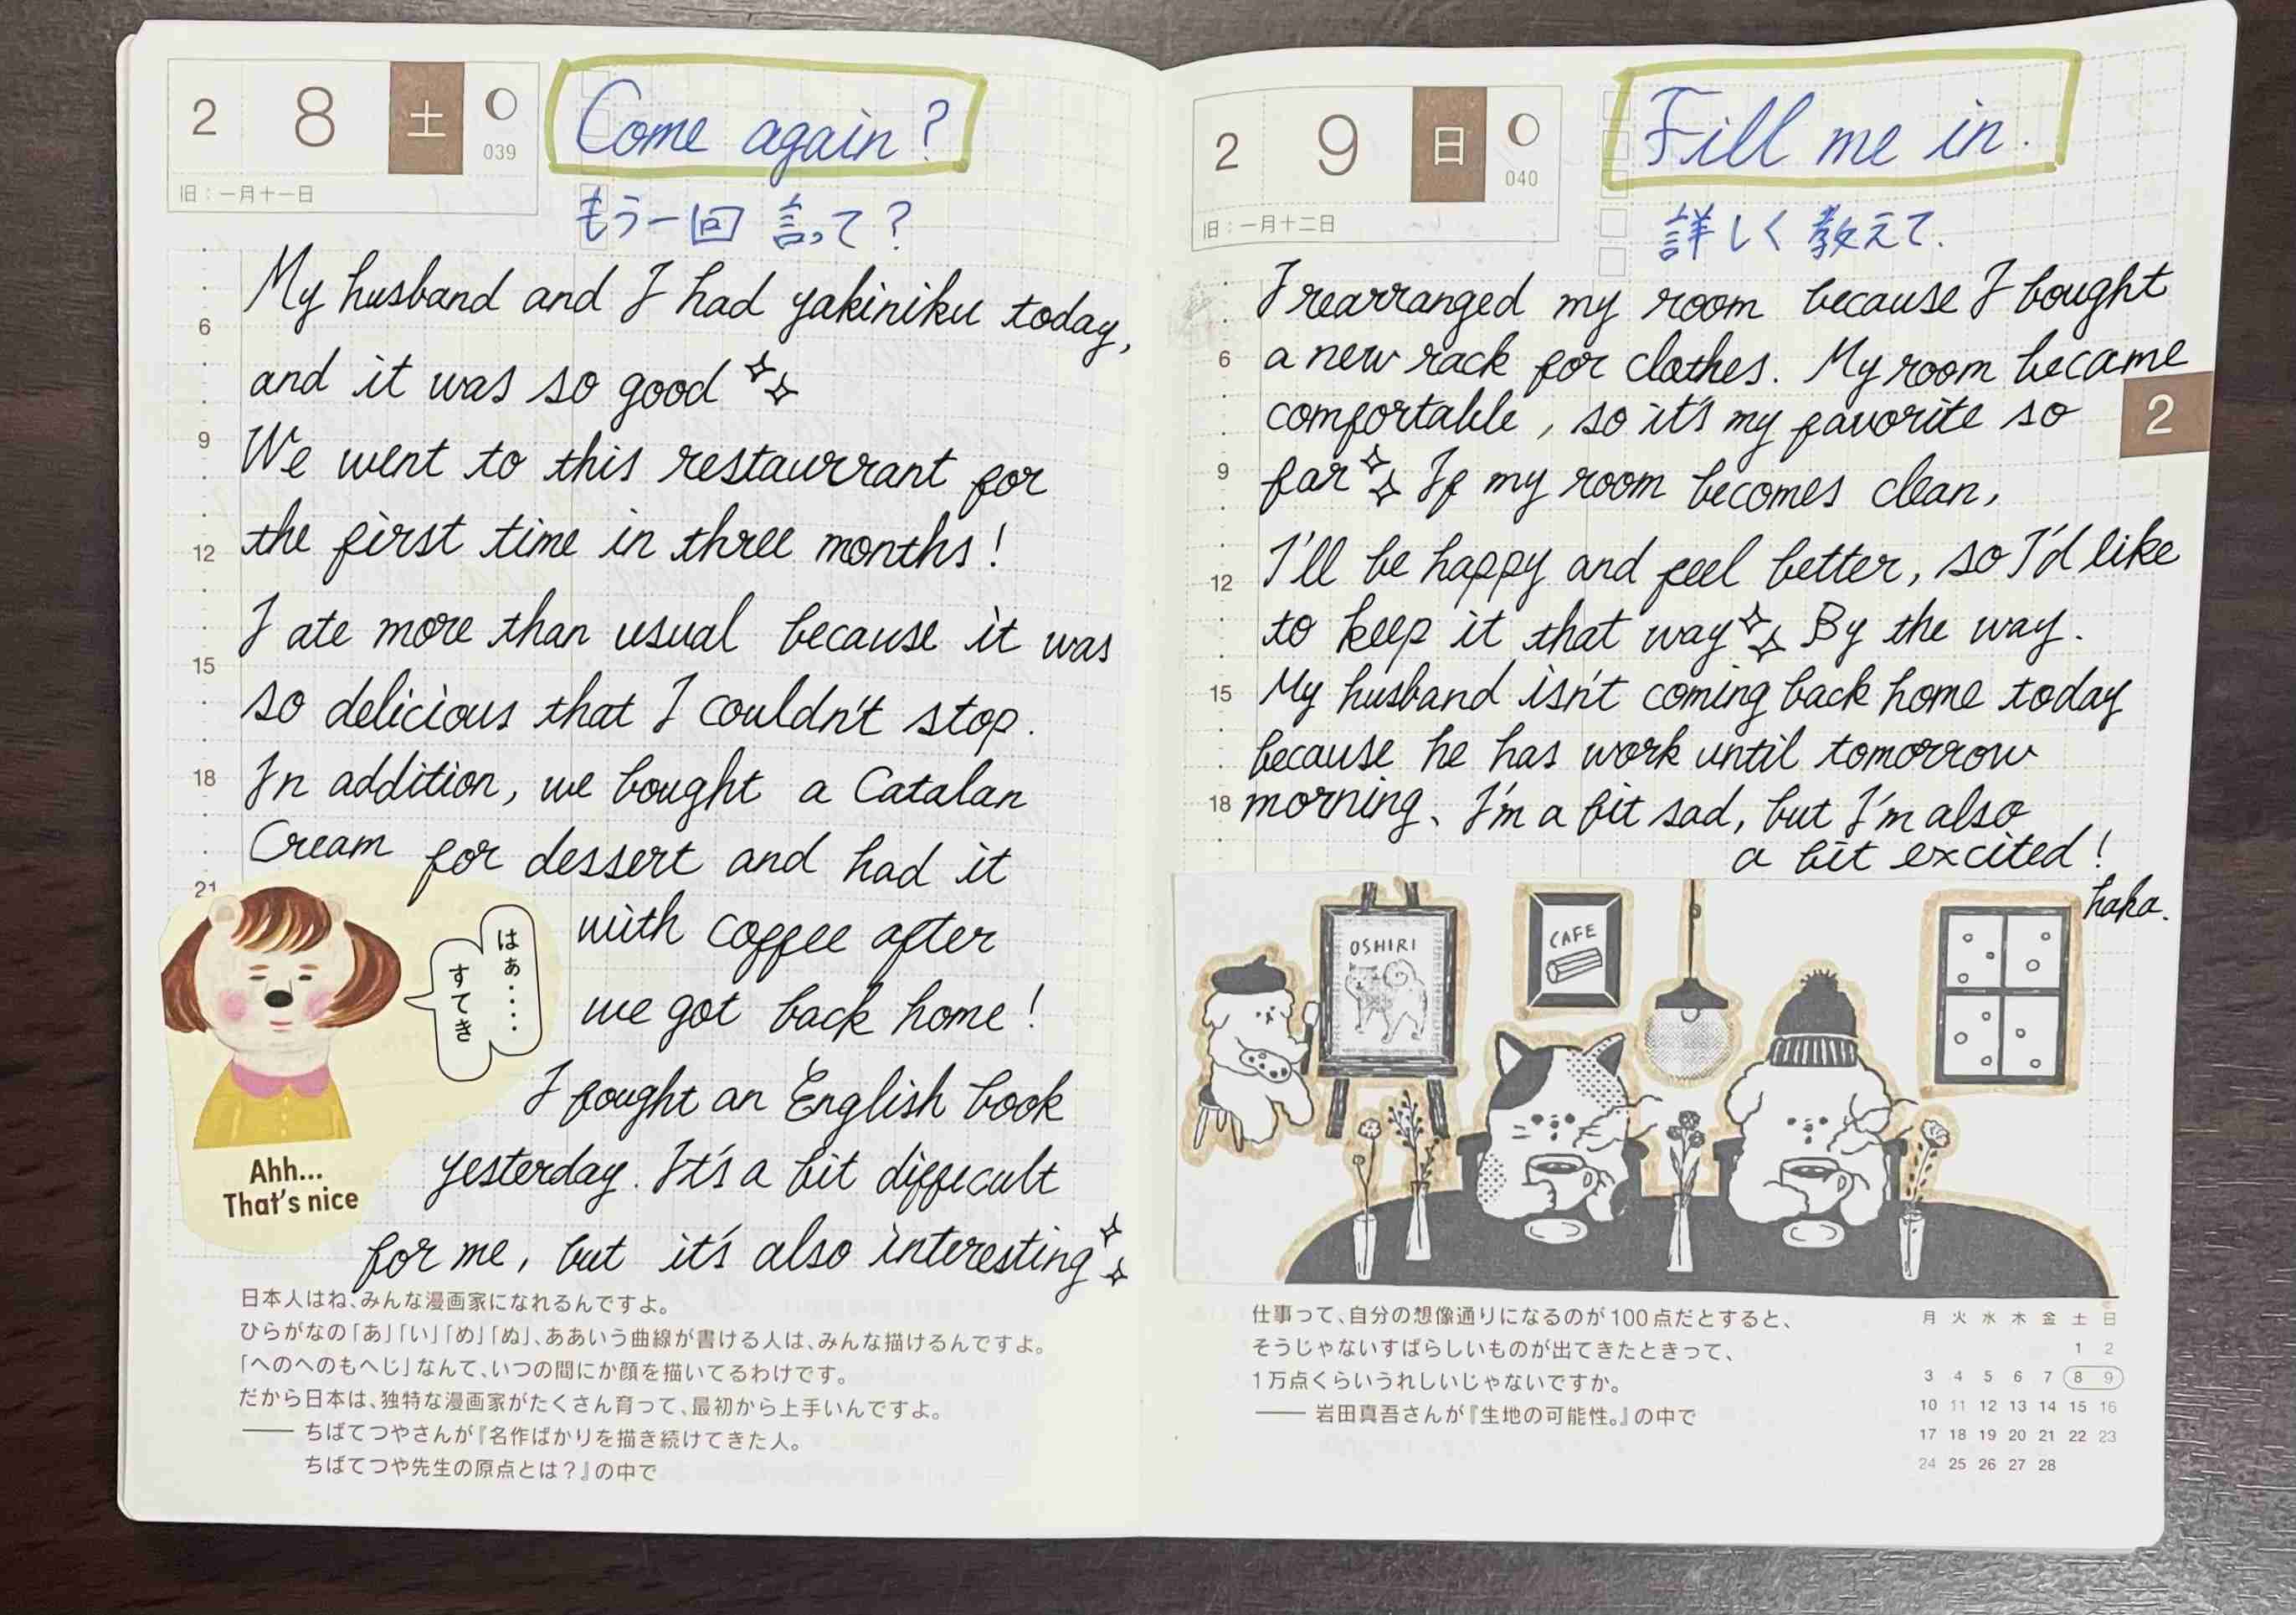 2 8 土
039
旧：一月十一日
Come again?
もう一回 言って？
My husband and I had yakiniku today,
and it was so good
We went to this restaurrant for
the first time in three months!
I ate more than usual because it was
so delicious that I couldn't stop.
In addition, we bought a Catalan
Cream for dessert and had it
with coffee after
we got back home!
I bought an English book
yesterday. It's a bit difficult
for me, but it's also interesting
6
9
12
15
18
21
はぁ‥‥
すてき
Ahh...
That's nice
日本人はね、みんな漫画家になれるんですよ。
ひらがなの「あ」「い」「め」「ぬ」、ああいう曲線が書ける人は、みんな描けるんですよ。
「へのへのもへじ」なんて、いつの間にか顔を描いてるわけです。
だから日本は、独特な漫画家がたくさん育って、最初から上手いんですよ。
―― ちばてつやさんが『名作ばかりを描き続けてきた人。
ちばてつや先生の原点とは？』の中で
2 9 日
040
旧：一月十二日
Fill me in.
詳しく教えて.
I rearranged my room because I bought
a new rack for clothes. My room became
comfortable, so it's my favorite so
far If my room becomes clean,
I'll be happy and feel better, so I'd like
to keep it that way By the way.
My husband isn't coming back home today
because he has work until tomorrow
morning、I'm a bit sad, but I'm also
a bit excited!
haha.
6
9
12
15
18
2
OSHIRI
CAFE
仕事って、自分の想像通りになるのが100点だとすると、
そうじゃないすばらしいものが出てきたときって、
1万点くらいうれしいじゃないですか。
―― 岩田真吾さんが『生地の可能性。』の中で
月 火 水 木 金 土 日
1 2
3 4 5 6 7 8 9
10 11 12 13 14 15 16
17 18 19 20 21 22 23
24 25 26 27 28